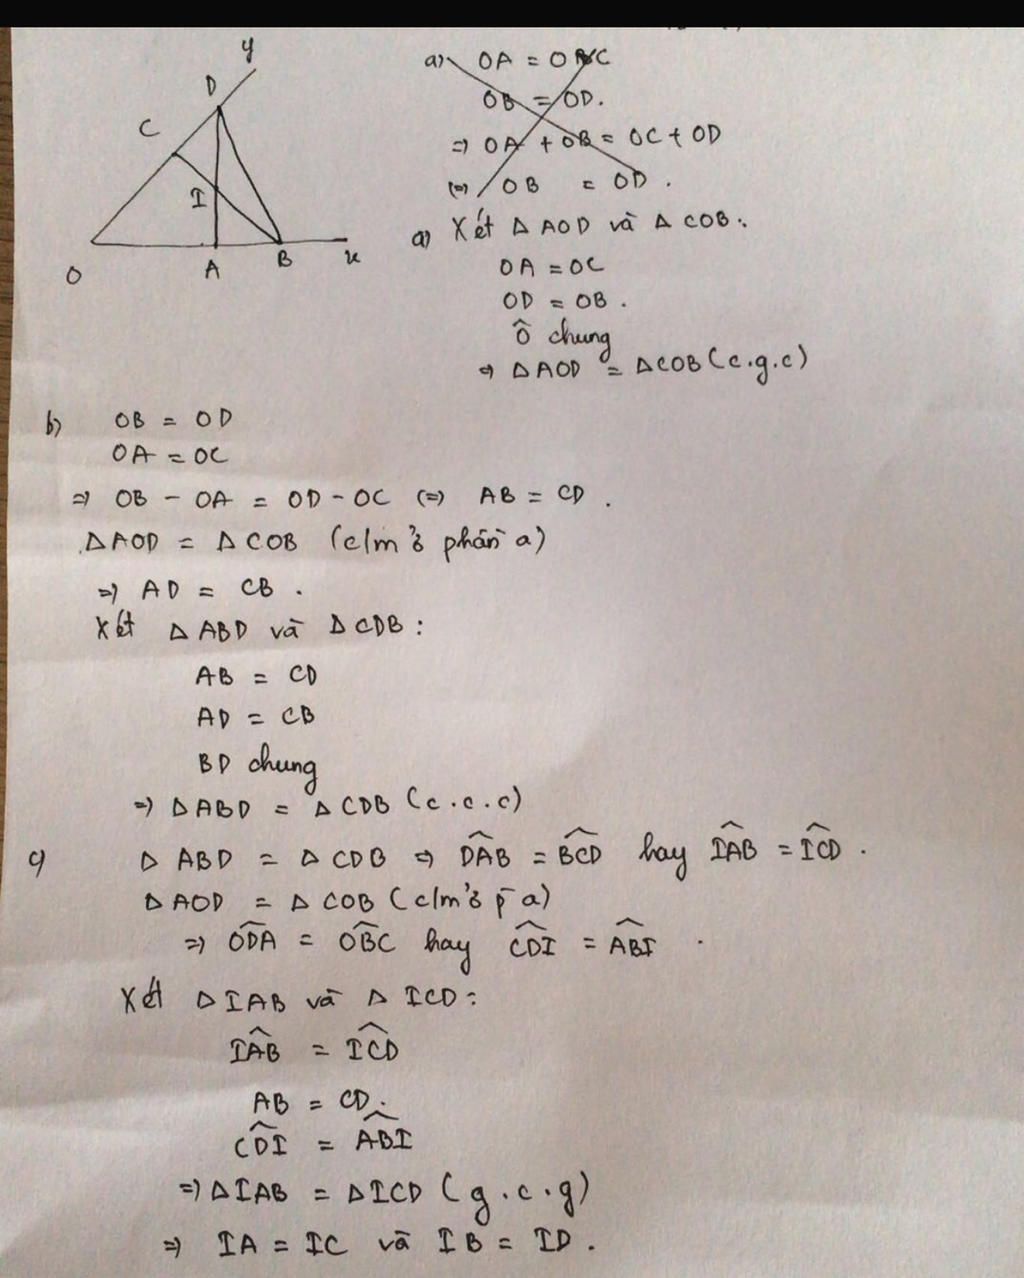 y
D
C
I
O
A
B
x
a) OA = OC
OB = OD.
=> OA + OB = OC + OD
(=) OB = OD.
a) Xét Δ AOD và Δ COB:
OA = OC
OD = OB.
Ô chung
=> Δ AOD = Δ COB (c.g.c)
b) OB = OD
OA = OC
=> OB - OA = OD - OC (=) AB = CD.
Δ AOD = Δ COB (c/m ở phần a)
=> AD = CB.
Xét Δ ABD và Δ CDB:
AB = CD
AD = CB
BD chung
=> Δ ABD = Δ CDB (c.c.c)
c) Δ ABD = Δ CDB => \widehat{DAB} = \widehat{BCD} hay \widehat{IAB} = \widehat{ICD}.
Δ AOD = Δ COB (c/m ở p̄ a)
=> \widehat{ODA} = \widehat{OBC} hay \widehat{CDI} = \widehat{ABI}.
Xét Δ IAB và Δ ICD:
\widehat{IAB} = \widehat{ICD}
AB = CD.
\widehat{CDI} = \widehat{ABI}
=> Δ IAB = Δ ICD (g.c.g)
=> IA = IC và IB = ID.